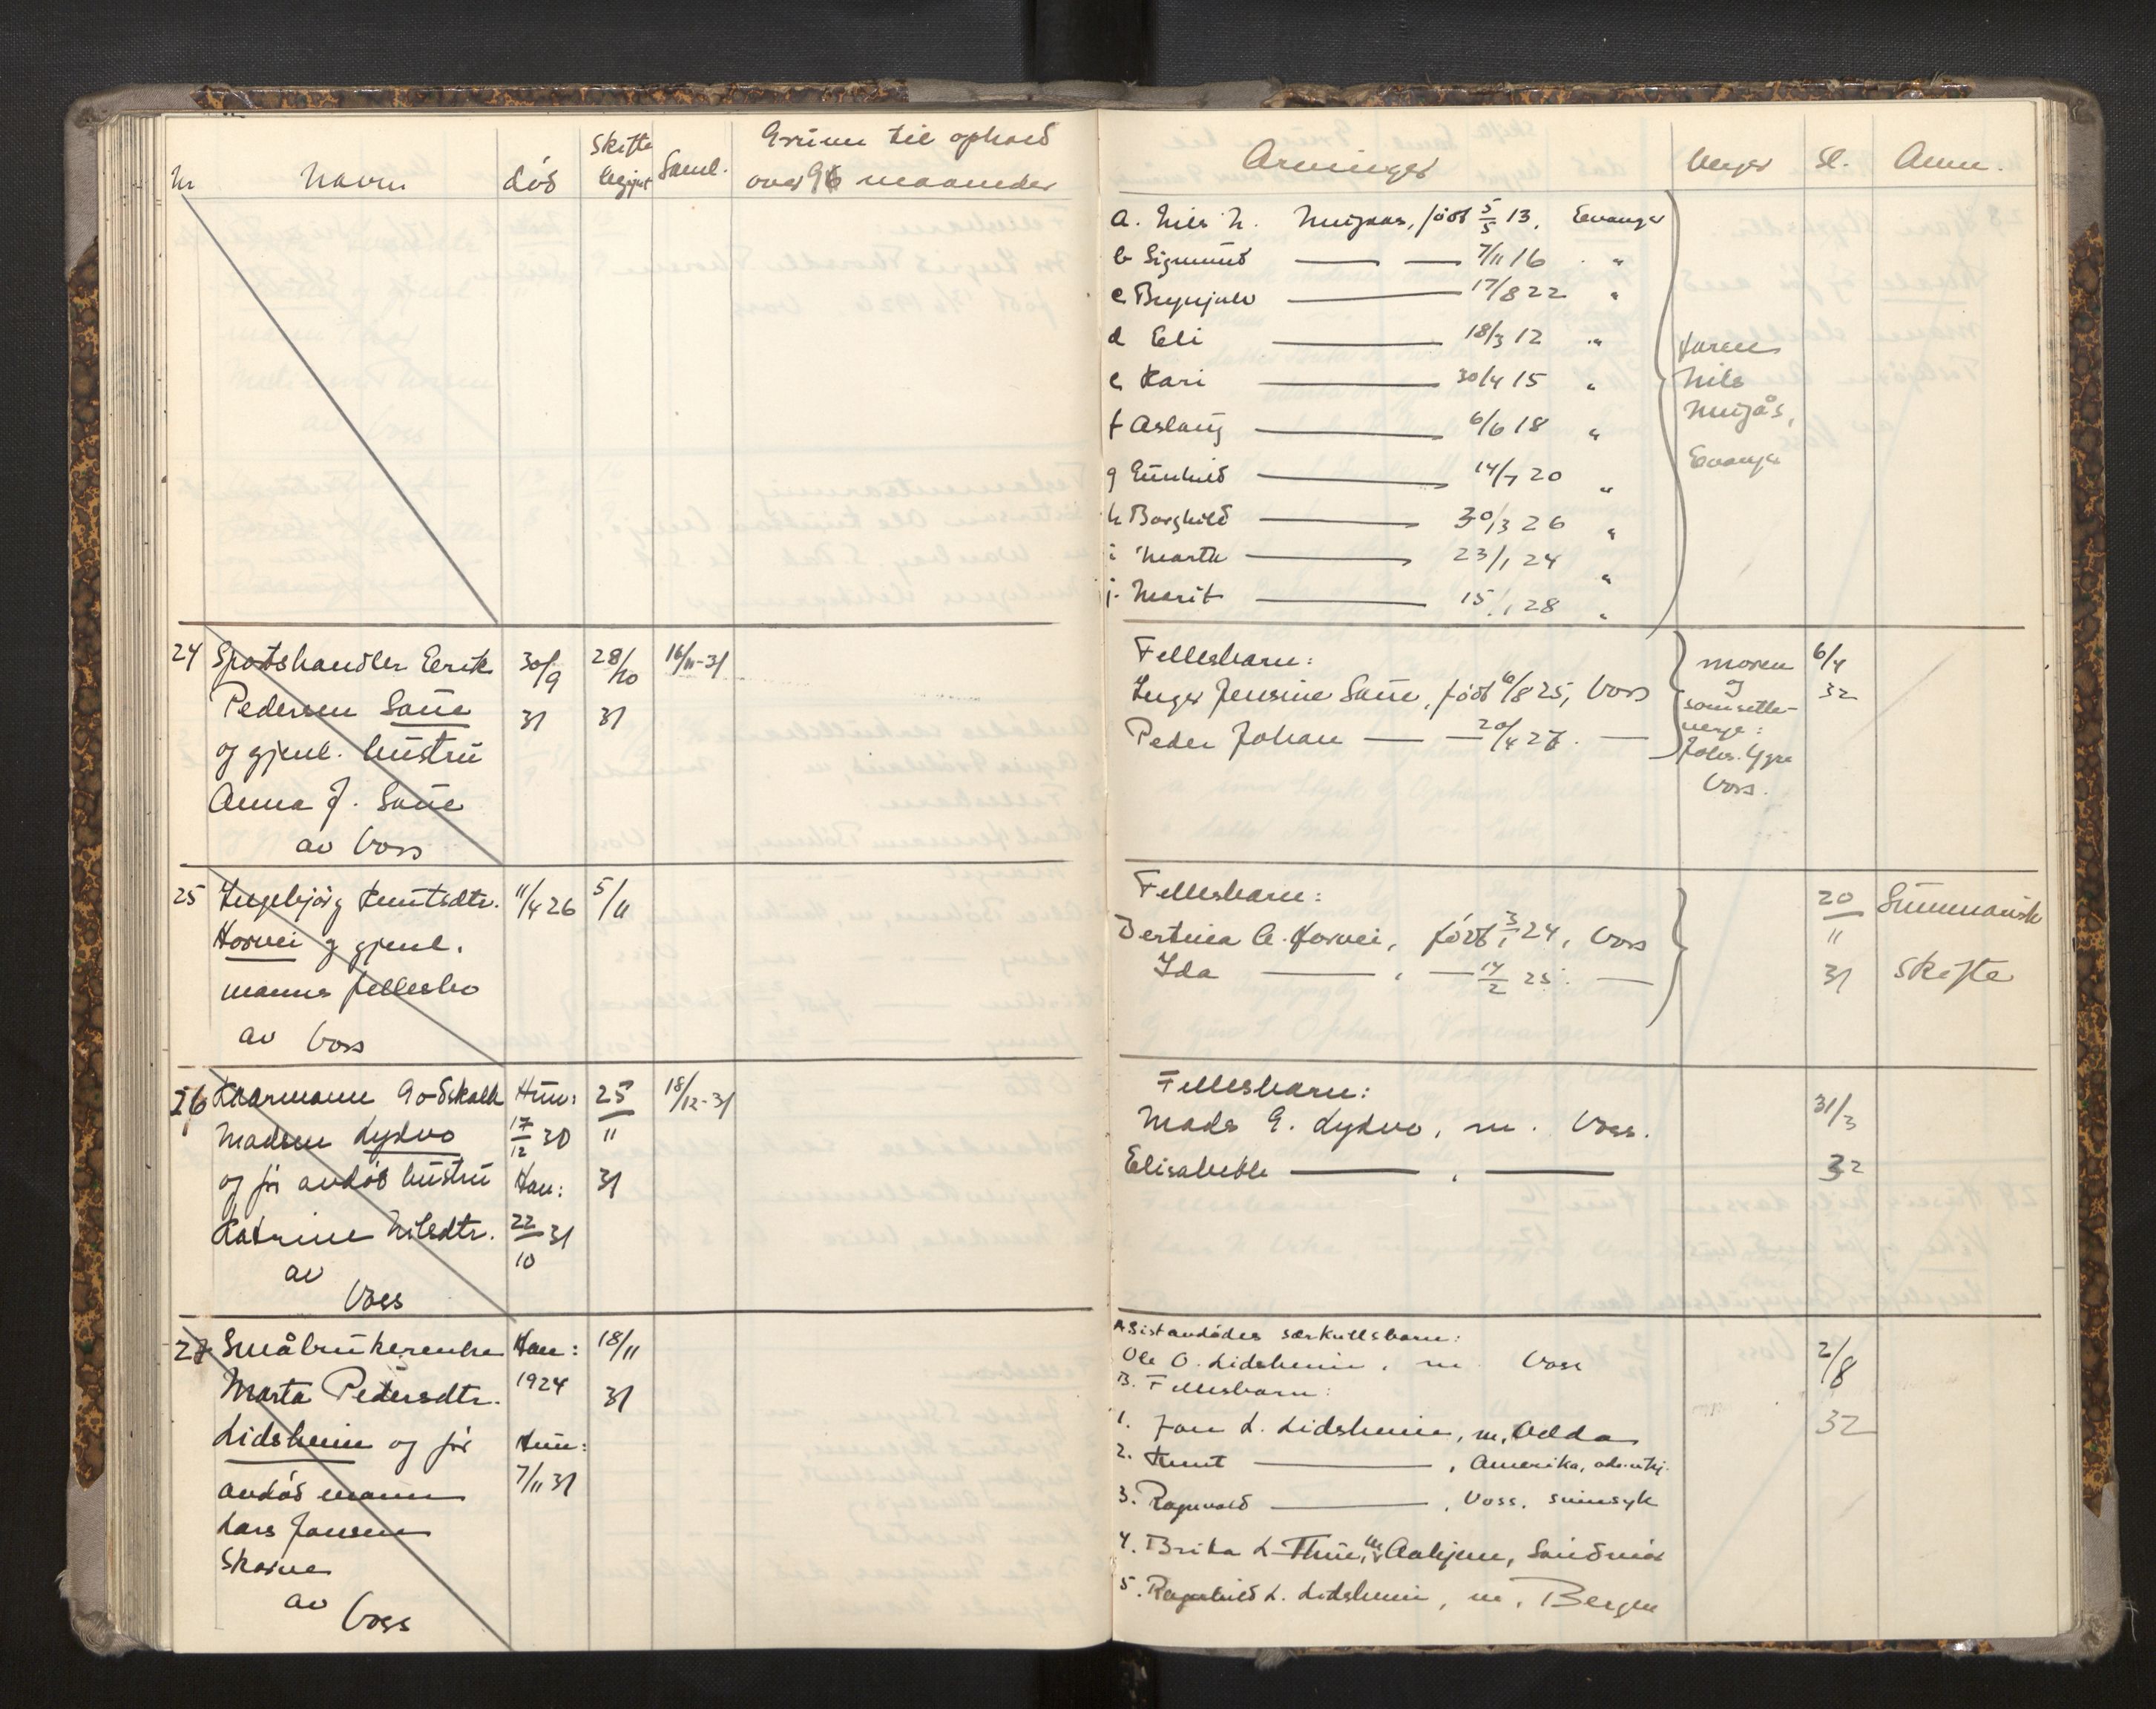 Nr Navn død Skifte begjært Saml. Grunn til ophold
over 6 maaneder
24 Sportshandler Eerik 30/9 28/10 16/11-31
Pedersen Saue 31 31
og gjenl. hustru
Anna J. Saue
av Voss
25 Ingebjørg Knutsdtr. 11/4 26 5/11
Horvei og gjenl.
manns fellesbo
av Voss
26 Kaarmann Godskalk Hun: 25 18/12-31
Madsen Lydvo 17/12 30 11
og før avdød hustru Han: 31
Katrine Nilsdtr. 22/10 31
av
Voss
27 Småbrukerenke Han: 18/11
Marta Pedersdtr. 1924 31
Lidsheim og før Hun:
avdød mann 7/11 31
Lars Jonsen
Skorve
av
Voss
Arvinger Verger Sl. Anm.
a. Nils N. Mugaas, født 5/5 13, Evanger
b Sigmund — — 7/11 16 "
c Brynjulv — 17/8 22 "
d Eli — 18/3 12 "
e Kari — 30/4 15 "
f Aslaug — 6/6 18 "
g Gunhild — 14/7 20 "
h Borghild — 30/3 26 "
i Marta — 23/1 24 "
j Marit — 15/1 28 "
Faren
Nils
Mugås,
Evanger
Fellesbarn:
Inger Jensine Saue, født 6/8 25, Voss
Peder Johan — — 20/4 27. —
moren
og
som sette-
verge:
Johs. Ygre
Voss.
6/4
32
Fellesbarn:
A. Horvei, født 3/1 24, Voss
Ida — , — 14/2 25. —
20
11
31
Summarisk
skifte
Fellesbarn:
Mads G. Lydvo, m. Voss.
Elisabeth — , —
31/3
32
A Sistavdødes særkullsbarn:
Ole O. Lidsheim, m. Voss
B. Fellesbarn:
1. Jon L. Lidsheim, m, Odda
2. Knut — , Amerika,
3. Ragnvald — , Voss, sinnsyk
4. Brita L. Thun, m Aahjem, Søndmør
5. Ragnhild L. Lidsheim, m, Bergen
2/8
32